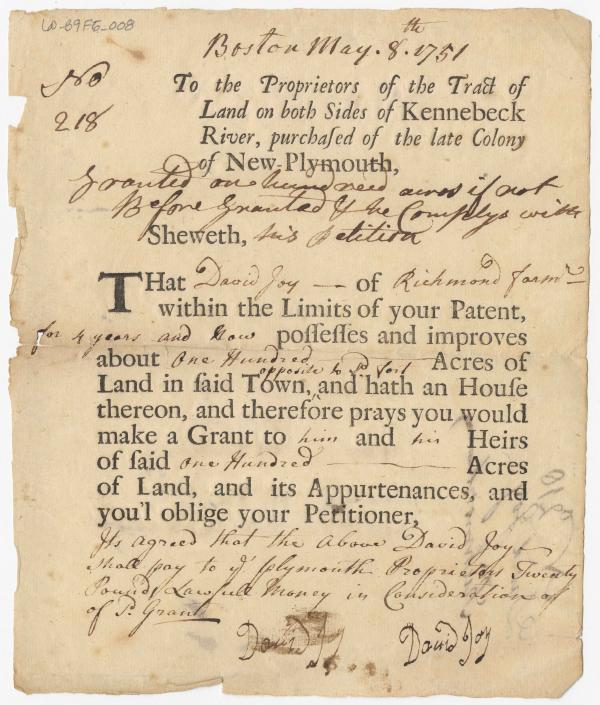 LO-B9F6-008
Boston May. 8.th 1751
No
218
To the Proprietors of the Tract of
Land on both Sides of Kennebeck
River, purchaſed of the late Colony
of New-Plymouth,
Granted one hundreed acres if not
Before Granted & he Complys with
Sheweth, his Petition
THat David Joy — of Richmond farm
within the Limits of your Patent,
for 4 years and Now poſſeſſes and improves
about One Hundred Acres of
opposite to sd fort
Land in ſaid Town, and hath an Houſe
thereon, and therefore prays you would
make a Grant to him and his Heirs
of ſaid One Hundred — Acres
of Land, and its Appurtenances, and
you'l oblige your Petitioner,
Its agreed that the above David Joy
Shall pay to ye plymouth Proprietors Twenty
Pounds Lawfull Money in Consideration of
of sd. Grant
David Joy David Joy